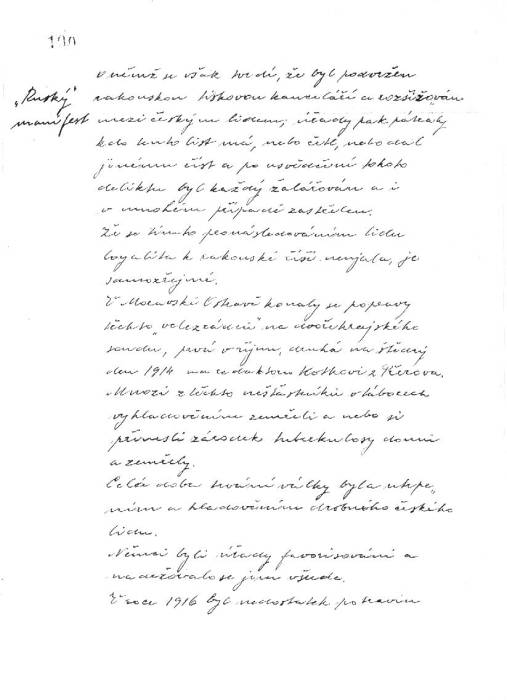 190
"Ruský"
manifest
v němž se však tvrdí, že byl podvržen
rakouskou tiskovou kanceláří a rozšiřován
mezi českým lidem; úřady pak pátraly
kdo tento list má, nebo četl, nebo dal
jinému číst a po usvědčení tohoto
deliktu byl každý žalářován a i
v mnohém případě zastřelen.
Že se tímto pronásledováním lidu
loyalita k rakouské říši neujala, je
samozřejmé.
V Moravské Ostravě konaly se popravy
těchto "velezrádců" na dvoře krajského
soudu, prvá v říjnu, druhá na štědrý
den 1914 na redaktoru Kotkovi z Přerova.
Mnozí z těchto nešťastníků v táborech
vyhladověním zemřeli a nebo si
přinesli zárodek tuberkulosy domů
a zemřely.
Celá doba trvání války byla utrpe„
ním a hladověním drobného českého
lidu.
Němci byli úřady favorisováni a
nadržovalo se jim všude.
V roce 1916 byl nedostatek potravin